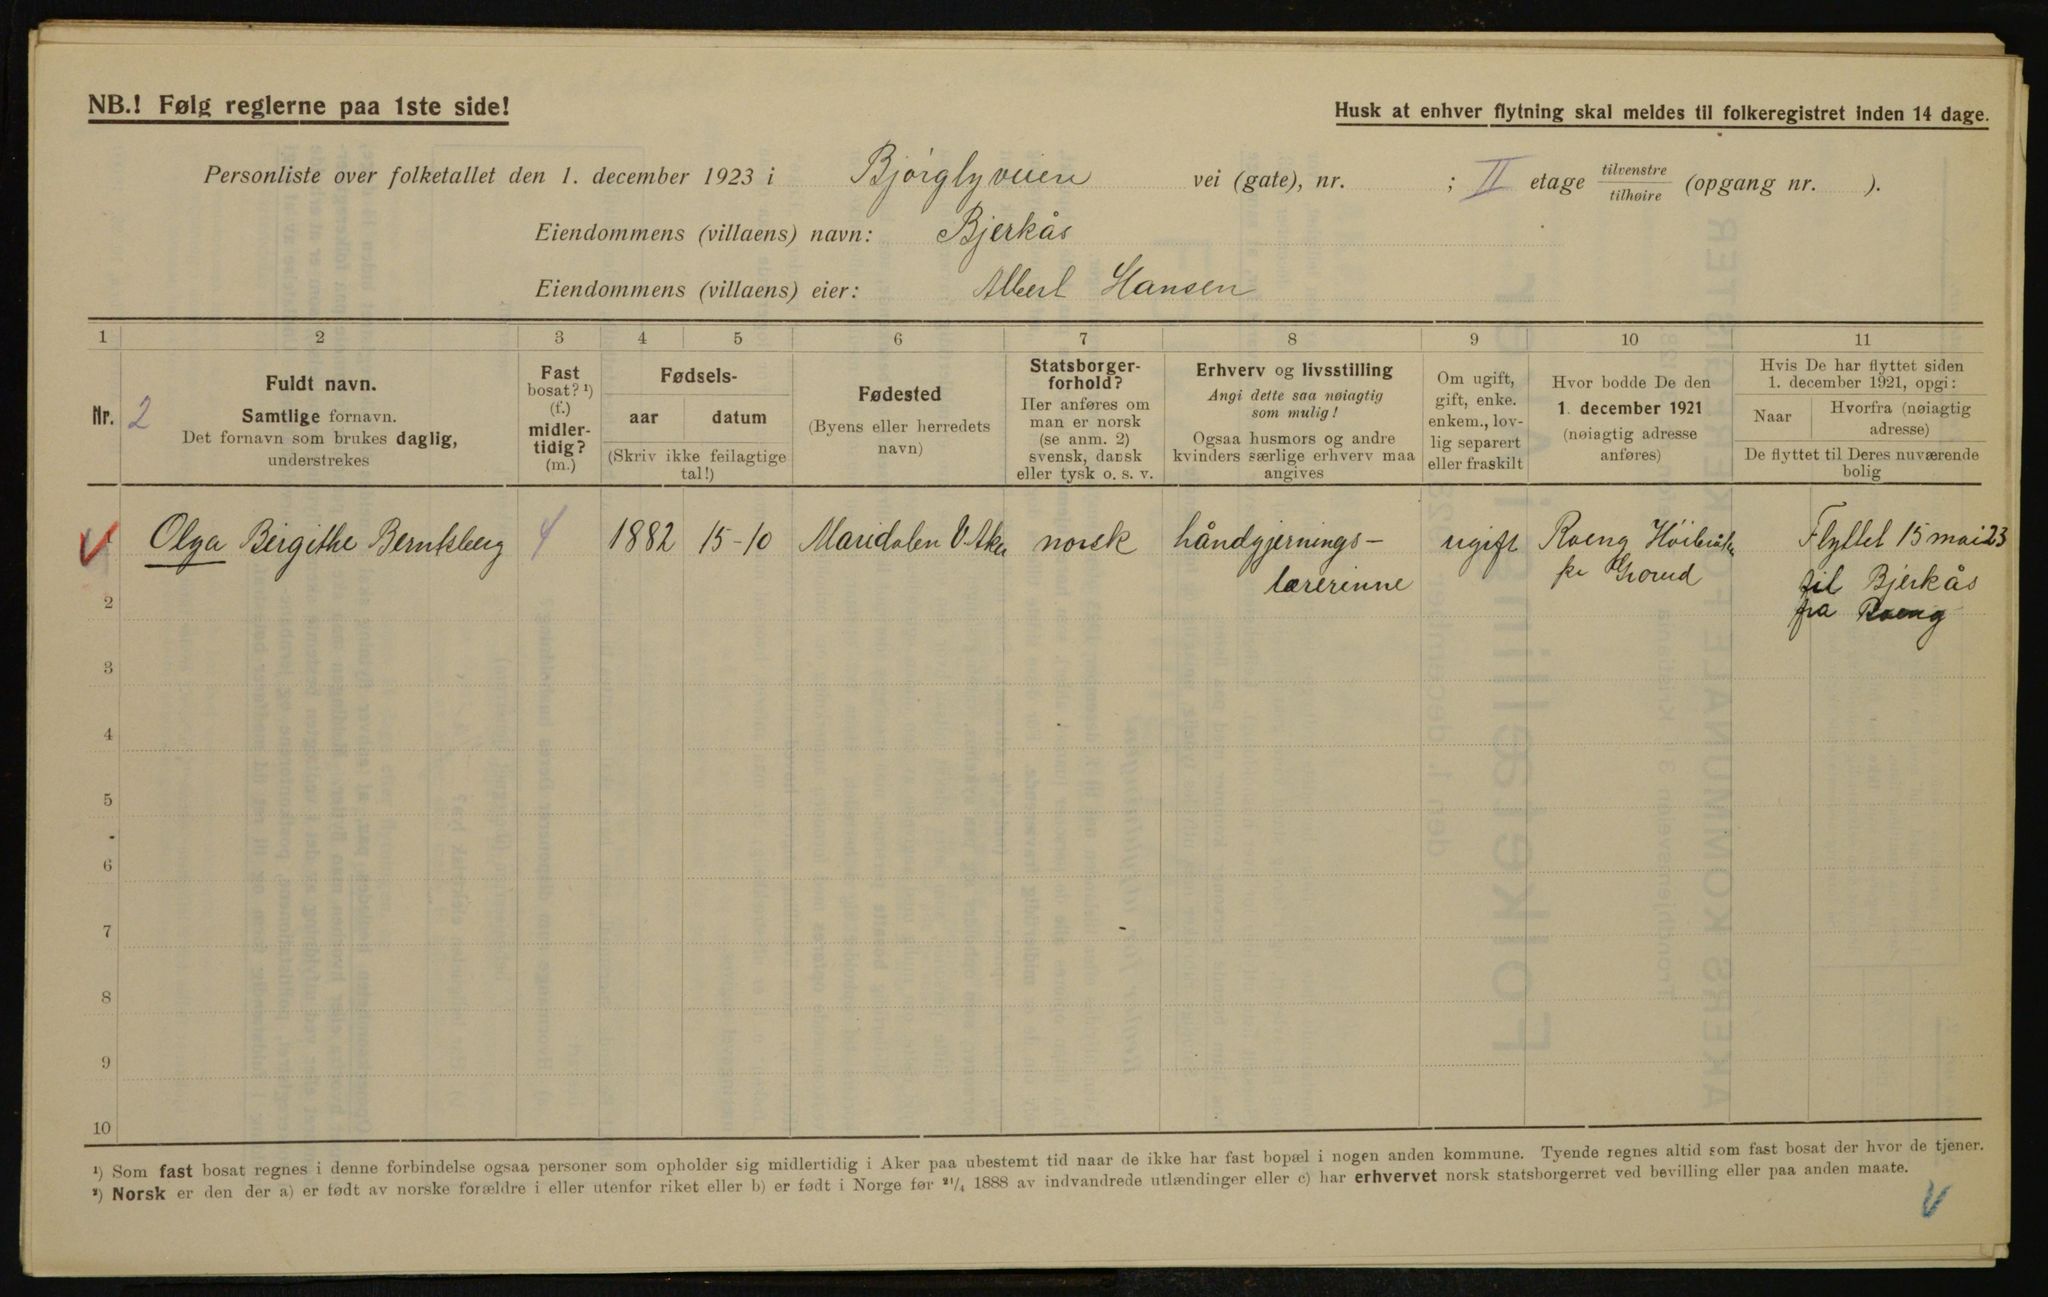 NB.! Følg reglerne paa 1ste side!
Husk at enhver flytning skal meldes til folkeregistret inden 14 dage.
Personliste over folketallet den 1. december 1923 i Bjørglyveien vei (gate), nr. ; II etage tilvenstre tilhøire (opgang nr. ).
Eiendommens (villaens) navn: Bjerkås
Eiendommens (villaens) eier: Albert Hansen
1 2 3 4 5 6 7 8 9 10 11
Nr. 2
Fuldt navn.
Samtlige fornavn.
Det fornavn som brukes daglig,
understrekes
Fast
bosat? ¹)
(f.)
midler-
tidig?
(m.)
Fødsels-
aar datum
(Skriv ikke feilagtige
tal!)
Fødested
(Byens eller herredets
navn)
Statsborger-
forhold?
Her anføres om
man er norsk
(se anm. 2)
svensk, dansk
eller tysk o. s. v.
Erhverv og livsstilling
Angi dette saa nøiagtig
som mulig!
Ogsaa husmors og andre
kvinders særlige erhverv maa
angives
Om ugift,
gift, enke.
enkem., lov-
lig separert
eller fraskilt
Hvor bodde De den
1. december 1921
(nøiagtig adresse
anføres)
Hvis De har flyttet siden
1. december 1921, opgi:
Naar
Hvorfra (nøiagtig
adresse)
De flyttet til Deres nuværende
bolig
Olga Birgithe Berntsberg f 1882 15-10 Maridalen V-Aker norsk håndgjernings- ugift Roeng Flyttet 15 mai 23
lærerinne Grorud til Bjerkås
fra Roeng
2
3
4
5
6
7
8
9
10
¹) Som fast bosat regnes i denne forbindelse ogsaa personer som opholder sig midlertidig i Aker paa ubestemt tid naar de ikke har fast bopæl i nogen anden kommune. Tyende regnes altid som fast bosat der hvor de tjener.
²) Norsk er den der a) er født av norske forældre i eller utenfor riket eller b) er født i Norge før ²¹/₄ 1888 av indvandrede utlændinger eller c) har erhvervet norsk statsborgerret ved bevilling eller paa anden maate.